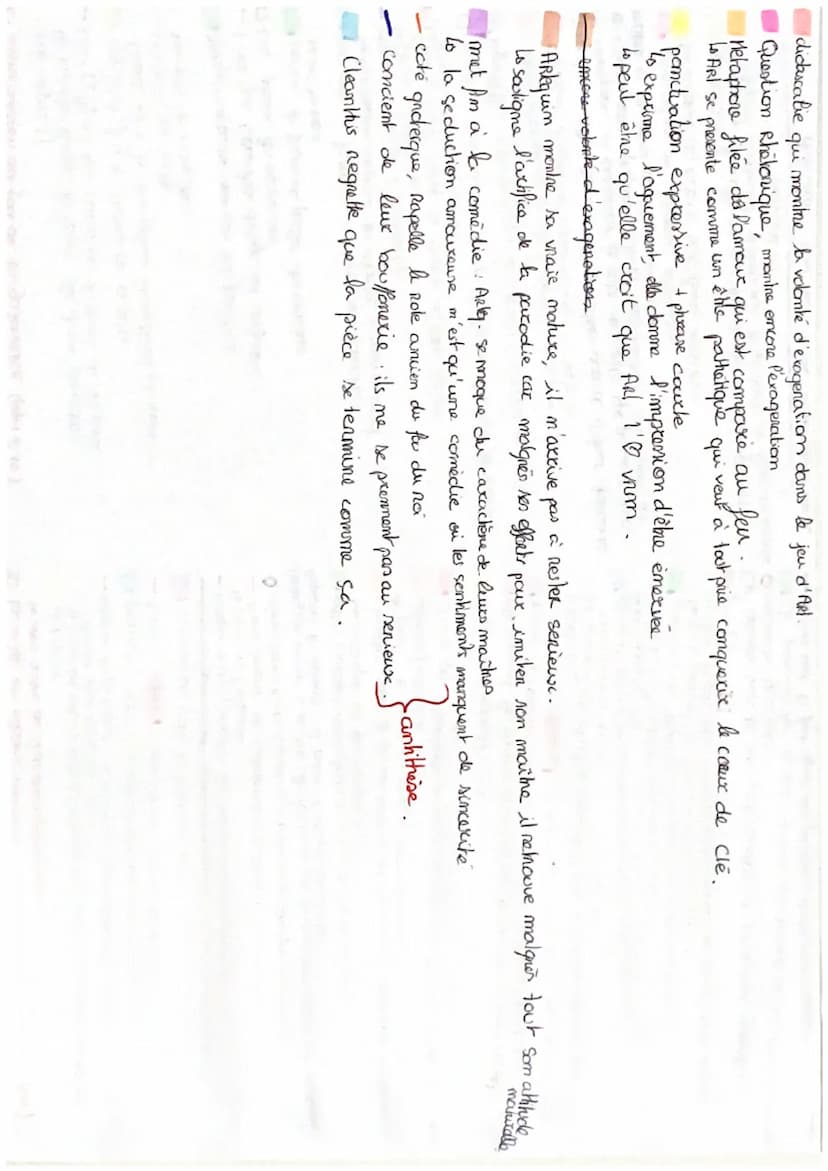 didascalie qui montre la volonté d'exageration dans le jeu d'Arl.
Question Rhétorique, montre encore l'exageration
Métaphore filée de l'amour qui est comparé au feu.
↳ Arl se présente comme un être pathétique qui veut à tout prix conquerir le cœur de Clé.
ponctuation expressive + phrase courte
↳ exprime l'aguement, elle donne l'impression d'être émerveé
↳ peut être qu'elle croit que Arl, l'♡ vrm.
volonté d'exageration
Arlequin montre sa vraie nature, il n'arrive pas à rester serieux.
↳ souligne l'artifice de la parodie car malgrés ses efforts pour imiter son maître il retrouve malgrés tout son attitude naturelle
met fin à la comédie : Arleq. se moque du caractère de leurs maîtres
↳ la seduction amoureuse n'est qu'une comédie où les sentiments manquent de sincerité
coté grotesque, rapelle le role ancien du fou du roi
concient de leur bouffonerie : ils ne se prennent pas au serieux. } antithèse.
Cleanthis regrette que la pièce se termine comme sa.